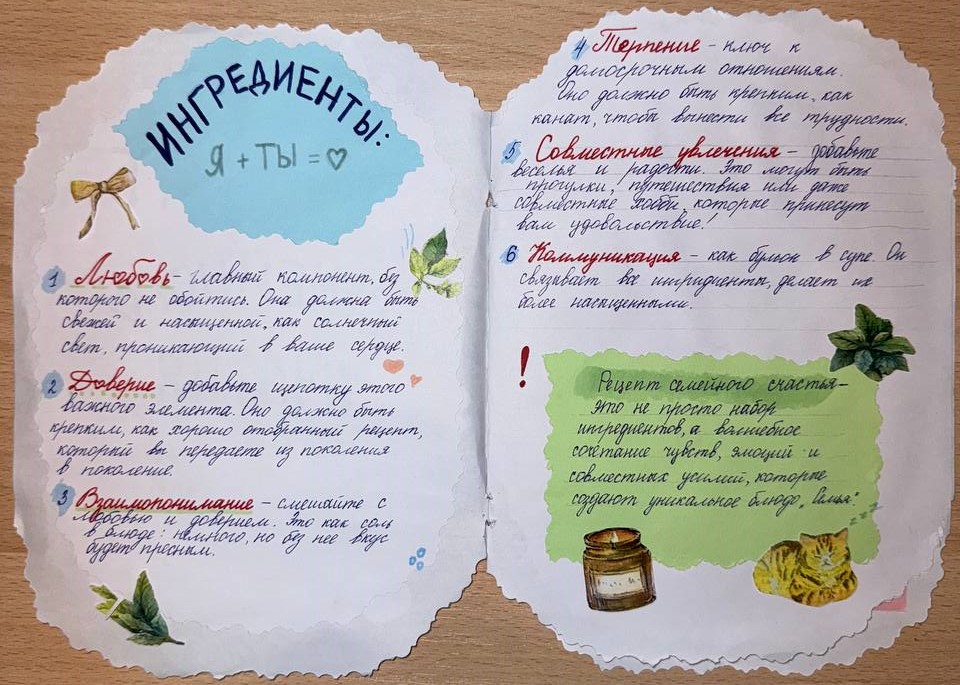 ИНГРЕДИЕНТЫ:
Я + ТЫ = ♡
1 Любовь - главный компонент, без
которого не обойтись. Она должна быть
свежей и насыщенной, как солнечный
свет, проникающий в ваше сердце.
2 Доверие - добавьте щепотку этого
важного элемента. Оно должно быть
крепким, как хорошо отобранный рецепт,
который вы передаете из поколения
в поколение.
3 Взаимопонимание - смешайте с
любовью и доверием. Это как соль
в блюде: немного, но без нее вкус
будет пресным.
4 Терпение - ключ к
долгосрочным отношениям.
Оно должно быть крепким, как
канат, чтобы вынести все трудности.
5 Совместные увлечения - добавьте
веселья и радости. Это могут быть
прогулки, путешествия или даже
совместные хобби, которые принесут
вам удовольствие!
6 Коммуникация - как бульон в супе. Он
связывает все ингридиенты, делает их
более насыщенными.
!
Рецепт семейного счастья -
это не просто набор
ингредиентов, а волшебное
сочетание чувств, эмоций и
совместных усилий, которые
создают уникальное блюдо „Семья".
z z z